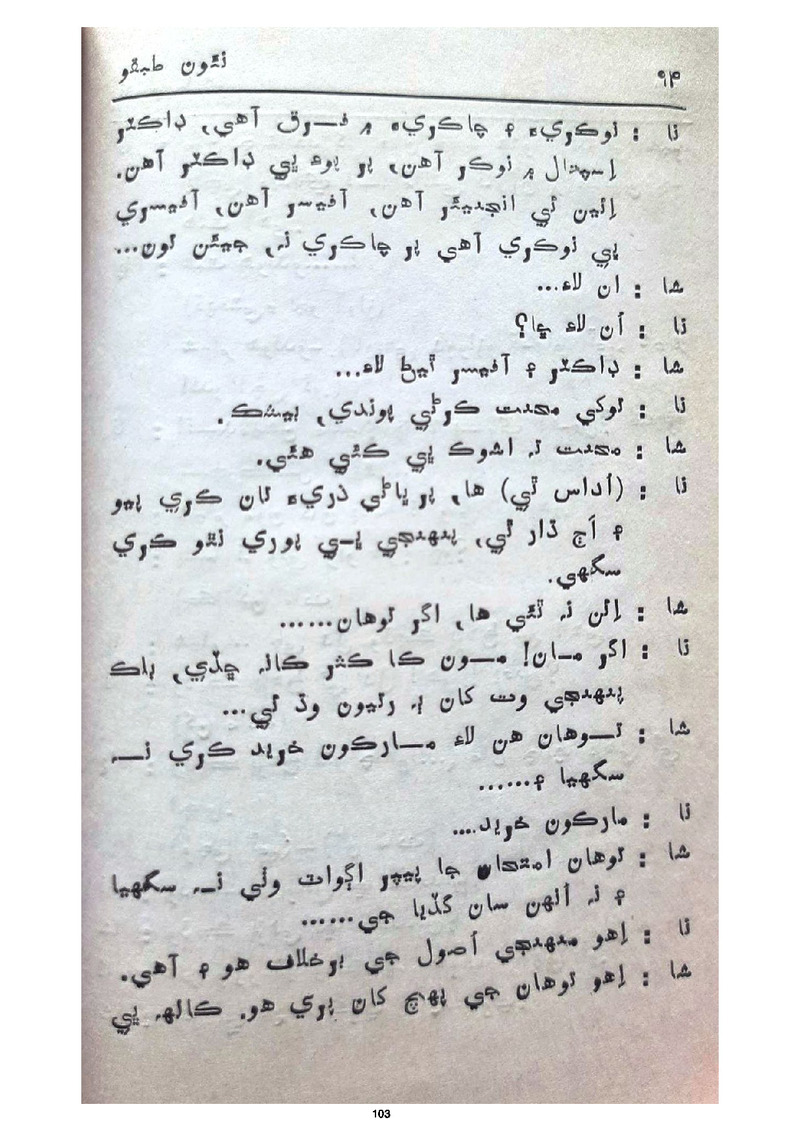 ۹۴ نئون طبقو
نا : نوڪريءَ ۽ چاڪريءَ ۾ فــرق آهي، ڊاڪٽر
اِسپتال ۾ نوڪر آهن، پر پوءِ بي ڊاڪٽر آهن.
اِئين ئي انجنيئر آهن، آفيسر آهن، آفيسري
بي نوڪري آهي پر چاڪري نہ، جيئن تون...
شا : ان لاءِ...
نا : اُن لاءِ ڇا؟
شا : ڊاڪٽر ۽ آفيسر ٿيڻ لاءِ...
نا : توکي محنت ڪرڻي پوندي، بيشڪ.
شا : محنت تہ اشوڪ بي ڪئي هئي.
نا : (اُداس ٿي) ها، پر پاڻي ذريءَ تان ڪري پيو
۽ اَڄ ڌار ٿي، پنهنجي پـي پوري نٿو ڪري
سگهي.
شا : اِئن نہ ٿئي ها، اگر توهان......
نا : اگر مــان! مــون ڪا ڪثر ڪانہ ڇڏي، ٻاڪ
پنهنجي وت کان بہ رتيون وڌ ٿي...
شا : تــوهان هن لاءِ مــارڪون خريد ڪري نــہ
سگهيا ۽......
نا : مارڪون خريد....
شا : توهان امتحان جا پيپر اڳواٽ وٺي نــہ سگهيا
۽ نہ اُنهن سان گڏيا جي......
نا : اِهو منهنجي اُصول جي برخلاف هو ۽ آهي.
شا : اِهو توهان جي پهچ کان ٻري هو. ڪالهہ بي
103